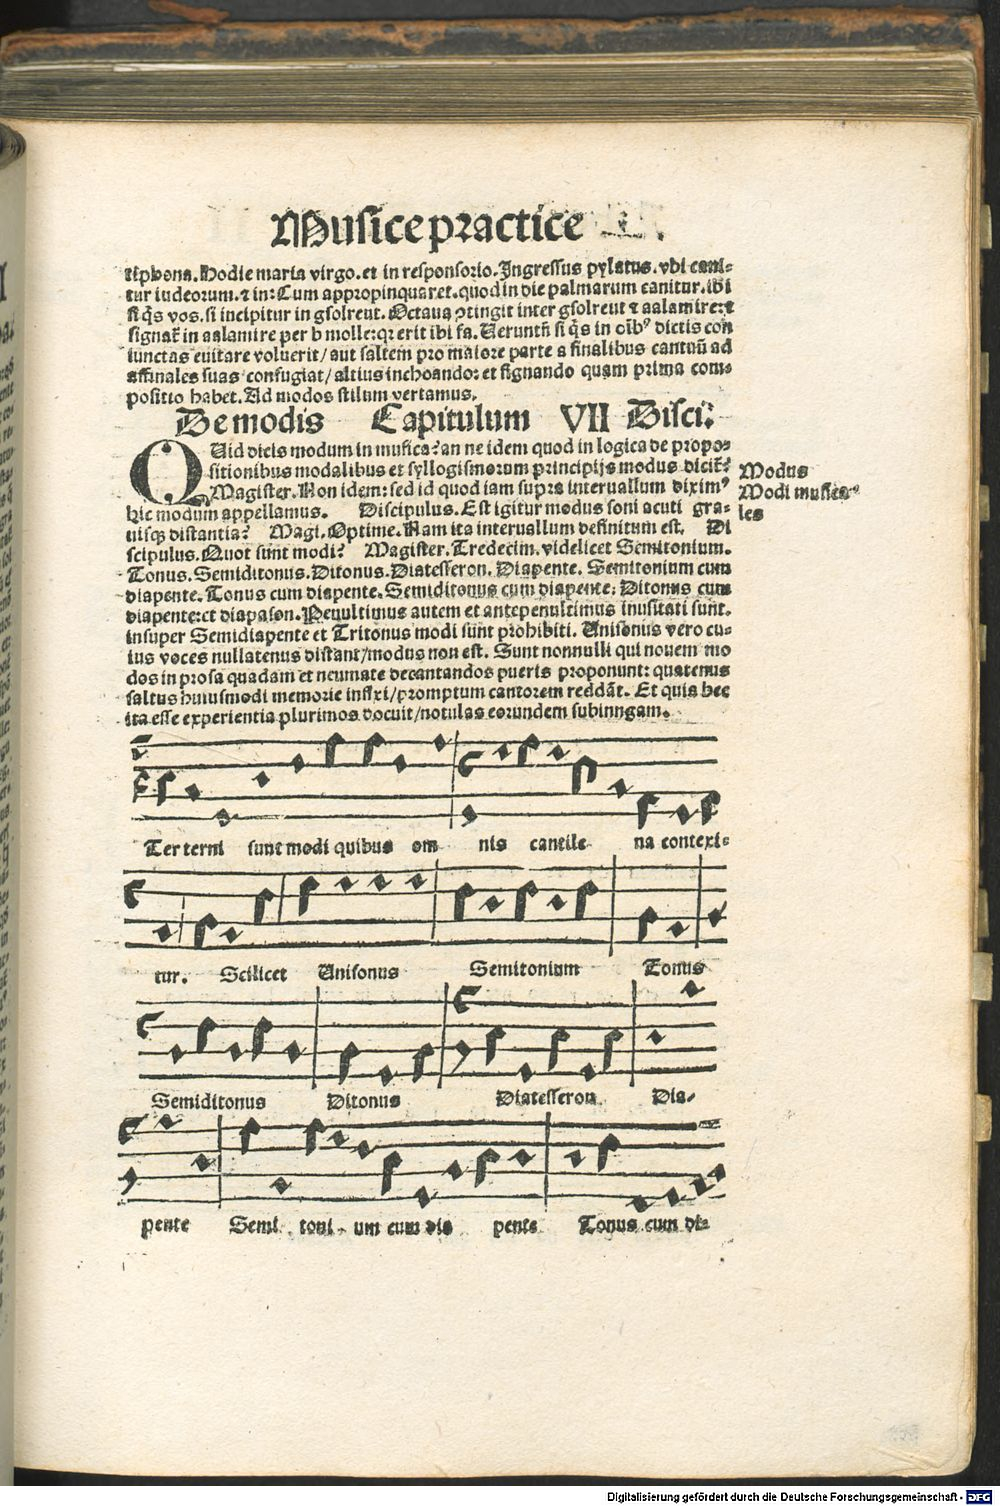 Musice practice
tiphona. Hodie maria virgo. et in responsorio. Ingressus pylatus. vbi cani-
tur iudeorum. ⁊ in: Cum appropinquaret. quod in die palmarum canitur. ibi
si q̃s vos. si incipitur in gsolreut. Octaua ↄtingit inter gsolreut ⁊ aalamire: ⁊
signat̃ in aalamire per b molle: qꝛ erit ibi fa. Ueruntñ si q̃s in oĩbꝰ dictis con
iunctas euitare voluerit/ aut saltem pro maiore parte a finalibus cantuũ ad
affinales suas confugiat/ altius inchoando: et signando quam prima com-
positio habet. Ad modos stilum vertamus.
De modis Capitulum VII Disci?
QUid dicis modum in musica? an ne idem quod in logica de propo-
sitionibus modalibus et syllogismorum principijs modus dicit̃?
Magister. Non idem: sed id quod iam supra interuallum diximꝰ
hic modum appellamus. Discipulus. Est igitur modus soni acuti gra-
uisqꝫ distantia? Magi. Optime. Nam ita interuallum definitum est. Di
scipulus. Quot sunt modi? Magister. Tredecim. videlicet Semitonium.
Tonus. Semiditonus. Ditonus. Diatesseron. Diapente. Semitonium cum
diapente. Tonus cum diapente. Semiditonus cum diapente: Ditonus cum
diapente: et diapason. Penultimus autem et antepenultimus inusitati sunt.
insuper Semidiapente et Tritonus modi sunt prohibiti. Unisonus vero cu-
ius voces nullatenus distant/ modus non est. Sunt nonnulli qui nouem mo
dos in prosa quadam et neumate decantandos pueris proponunt: quatenus
saltus huiusmodi memorie infixi/ promptum cantorem reddãt. Et quia hec
ita esse experientia plurimos docuit/ notulas eorundem subiungam.
Modus
Modi musica-
les
Ter terni sunt modi quibus om nis cantile na contexi-
tur. Scilicet Unisonus Semitonium Tonus
Semiditonus Ditonus Diatesseron Dia-
pente Semi toni um cum dia pente Tonus cum di-
Digitalisierung gefördert durch die Deutsche Forschungsgemeinschaft - DFG